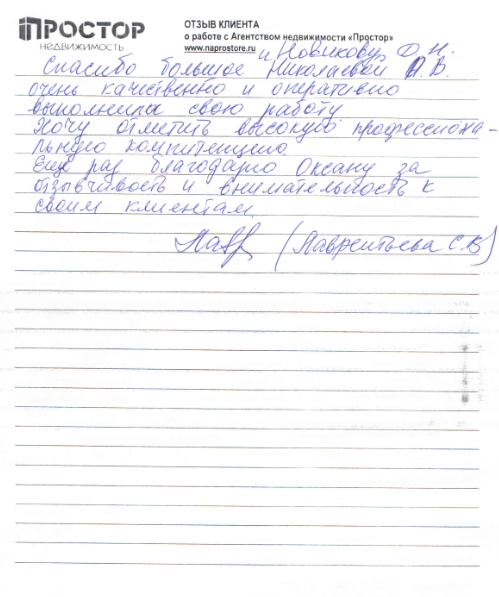 ПРОСТОР
НЕДВИЖИМОСТЬ
ОТЗЫВ КЛИЕНТА
о работе с Агентством недвижимости «Простор»
www.naprostore.ru
и Новикову О.Н.
Спасибо большое Николаевой А.В.
очень качественно и оперативно
выполнила свою работу
Хочу отметить высокую профессиона-
льную компитенцию.
Еще раз благодарю Оксану за
отзывчивость и внимательность к
своим клиентам.
Лавр (Лаврентьева С.В)